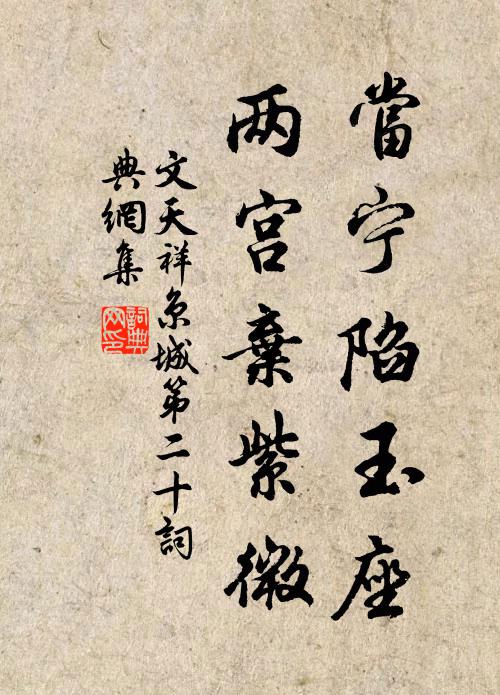 當宁陷玉座
两宫棄紫微
文天祥京城第二十詞
典網集
詞典
网印